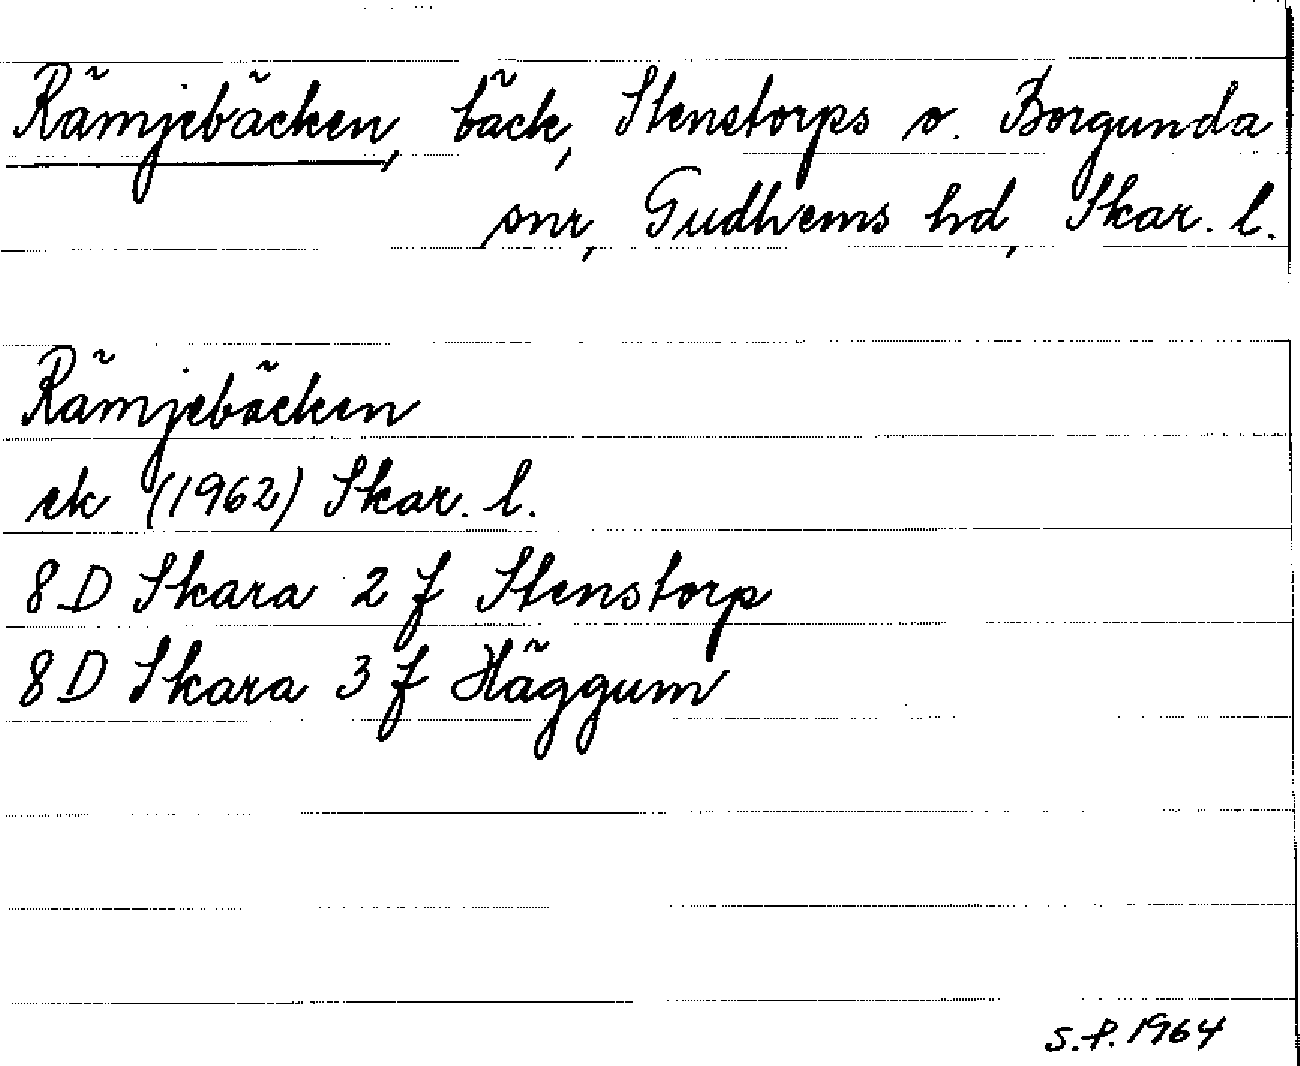 Rämjebäcken, bäck, Stenstorps o. Borgunda
snr, Gudhems hd, Skar. l.
Rämjebäcken
ek (1962) Skar. l.
8 D Skara 2 f Stenstorp
8 D Skara 3 f Häggum
S.P. 1964